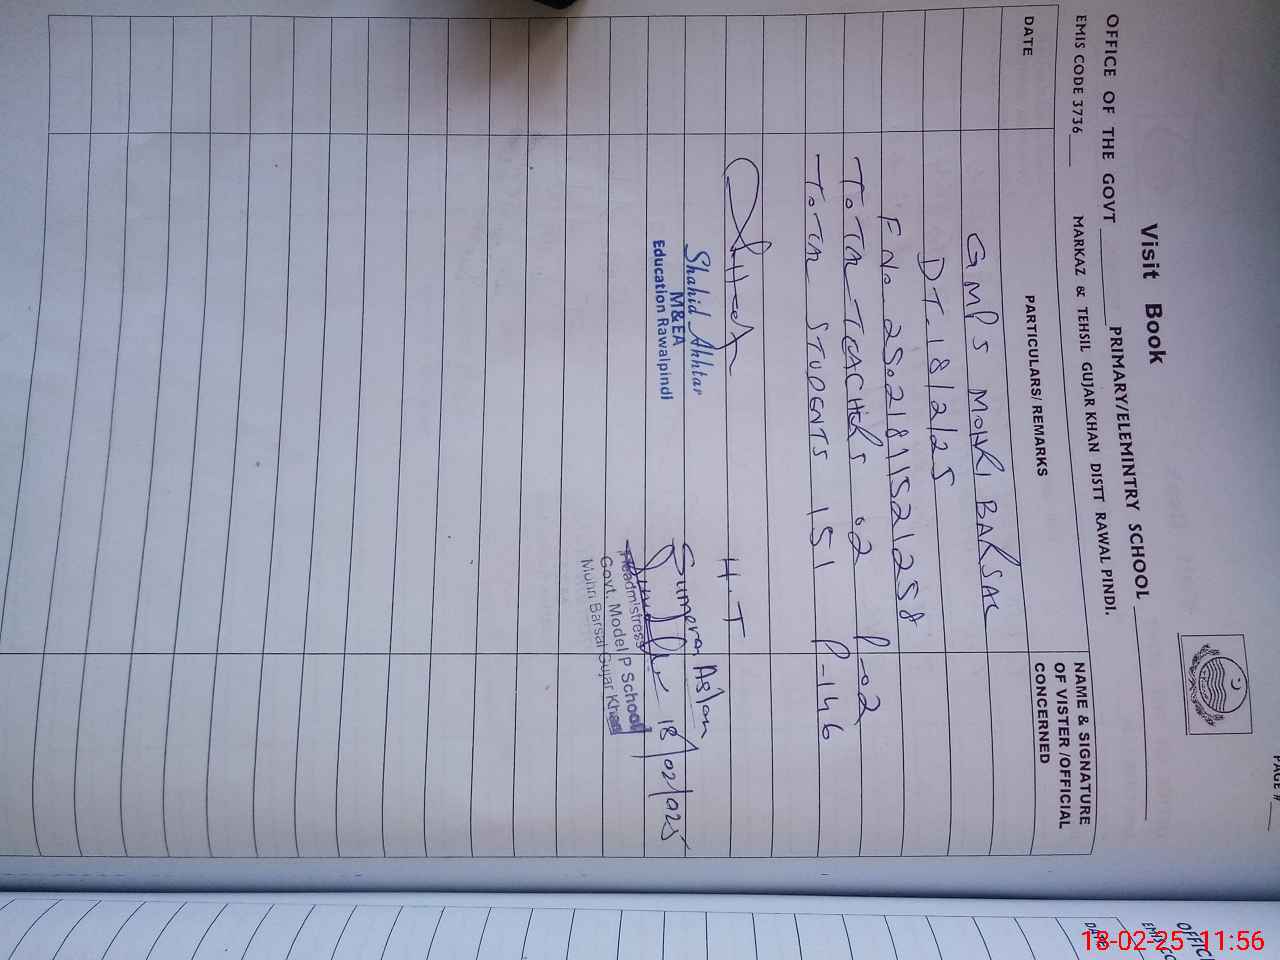 PAGE #
Visit Book
OFFICE OF THE GOVT PRIMARY/ELEMINTRY SCHOOL
EMIS CODE 3736 MARKAZ & TEHSIL GUJAR KHAN DISTT RAWAL PINDI.
DATE
PARTICULARS/ REMARKS
NAME & SIGNATURE
OF VISTER /OFFICIAL
CONCERNED
GMPS MOHRI BARSAL
DT. 18/2/25
F No. 25021811521258
TOTAL TEACHERS 02 P-02
TOTAL STUDENTS 151 P-146
H.T
Shahid Akhtar
M&EA
Education Rawalpindi
Sumera Aslam
18/02/025
Headmistress
Govt. Model P School
Mohri Barsal Gujar Khan
OFFIC
EMIS CO
DATE
18-02-25 11:56